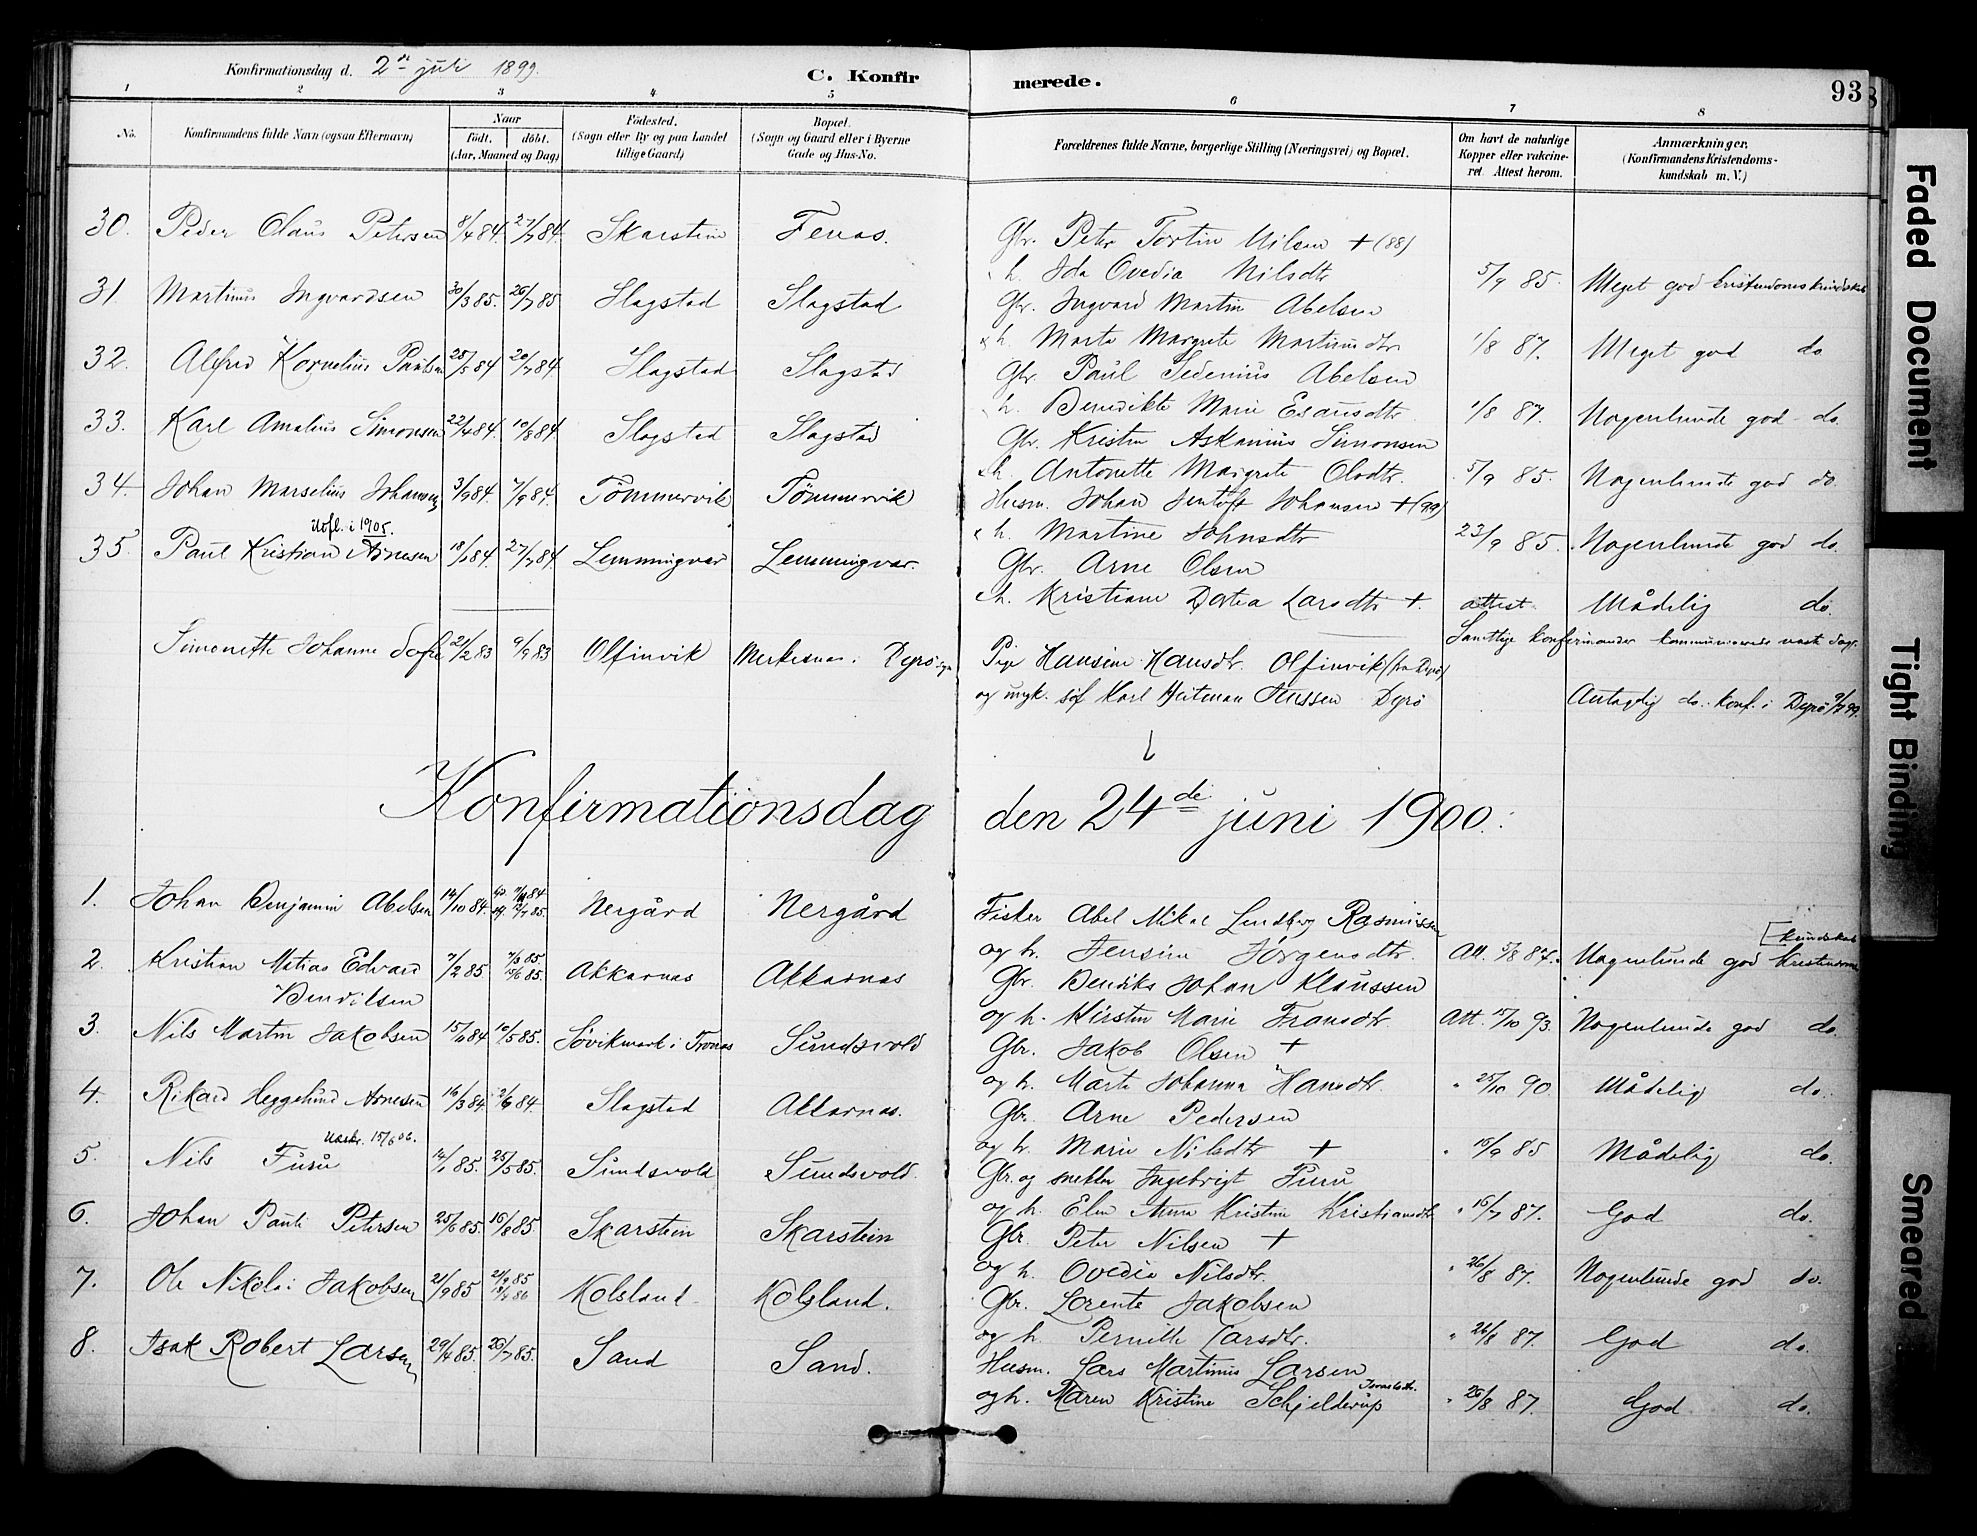 Konfirmationsdag d. 2de juli 1899.
C. Konfirmerede.
93
1 2 3 4 5 6 7 8
No. Konfirmandens fulde Navn (ogsaa Efternavn) Naar født. døbt. (Aar, Maaned og Dag) Fødested. (Sogn eller By og paa Landet tillige Gaard) Bopæl. (Sogn og Gaard eller i Byerne Gade og Hus-No. Forældrenes fulde Navne, borgerlige Stilling (Næringsvei) og Bopæl. Om havt de naturlige Kopper eller vakcineret. Attest herom. Anmærkninger. (Konfirmandens Kristendomskundskab m. V.)
30. Peder Olaus Petersen 8/4 84. 27/7 84. Skarstein Fenes. Gbr. Peter Tortin Nilsen + (88)
h. Ida Ovedia Nilsdtr 5/9 85. Meget god kristendomskundskab
31. Martinus Ingvardsen 30/3 85. 26/7 85 Slagstad Slagstad Gbr. Ingvard Martin Abelsen
h. Marta Margrete Martinusdtr 1/8 87. Meget god do
32. Alfred Kornelius Paulsen 25/5 84 20/7 84 Slagstad Slagstad Gbr. Paul Sedenius Abelsen
h. Benedikte Marie Esausdtr. 1/8 87. Nogenlunde god do.
33. Karl Amalius Simonsen 22/4 84. 10/8 84 Slagstad Slagstad Gbr. Kristen Askanius Simonsen
h. Antonette Margrete Olsdtr. 5/9 85. Nogenlunde god do.
34. Johan Marselius Johansen 3/9 84. 7/9 84. Tömmervik Tömmervik Husm. Johan Jentoft Johansen + (99)
h. Martine Johnsdtr 23/9 85. Nogenlunde god do.
Uofl. i 1905.
35. Paul Kristian Arnesen 18/1 84 27/7 84 Lemmingvær Lemmingvær. Gbr. Arne Olsen
h. Kristiane Dortea Larsdtr +. attest Mådelig do.
Samtlige konfirmander kommunicerede næste dag.
Simonette Johanne Sofie 21/2 83 9/9 83 Olfinvik Merkesnes i Dyrø Pige Hansine Hansdtr. Olfinvik (fra Dyrø)
og ungk. søf Karl Heitman Jenssen Dyrø Antagelig do. konf. i Dyrø 2/7 99.
Konfirmationsdag den 24de juni 1900.
1. Johan Benjamin Abelsen 14/10 84. 12/7 85. Nergård Nergård Fisker Abel Mikal Lindberg Rasmussen
og h. Jensine Jørgensdtr. Att. 5/8 87. Nogenlunde god Kristendoms
[kundskab
2. Kristian Matias Edvard 7/2 85 7/3 85 15/6 85. Akkarnes Akkarnes Gbr. Bendiks Johan Klaussen
Benrilsen og h. Kirstin Marie Fransdtr. Att. 15/10 93. Nogenlunde god do.
3. Nils Martin Jakobsen 15/11 84 10/5 85. Søvikmark i Tronæs Sundsvold Gbr. Jakob Olsen +
og h. Marta Johanna Hansdtr. " 25/10 90. Mådelig do.
4. Rikard Heggelund Arnesen 16/3 84 2/6 84. Slagstad Akkarnes. Gbr. Arne Pedersen
og h. Marie Nilsdtr + " 15/9 85 Mådelig do.
15/6 06.
5. Nils Furu 14/1 85. 25/5 85. Sundsvold Sundsvold. Gbr. og snekker Ingebrigt Furu
og h. Elen Anna Kristine Kristiansdtr " 16/7 87. God do.
6. Johan Pauli Petersen 25/6 85. 16/8 85. Skarstein Skarstein Gbr. Peter Nilsen +
og h. Ovedia Nilsdtr. " 26/8 87. Nogenlunde god do.
7. Ole Nikolai Jakobsen 21/9 85 21/9 85 Kolsland. Kolsland. Gbr. Lorents Jakobsen
og h. Pernille Larsdtr. " 26/8 87. God do.
8. Isak Robert Larsen 29/4 85. 26/7 85. Sand Sand. Husm. Lars Martinus Larsen
og h. Maren Kristine Schjelderup " 26/8 87. God do.
Faded Document
Tight Binding
Smeared